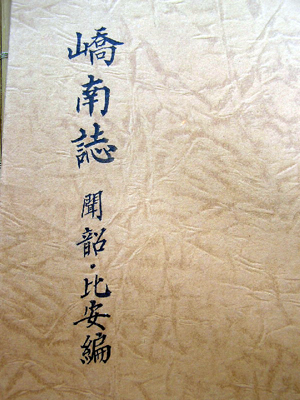 嶠南誌 聞韶·比安編